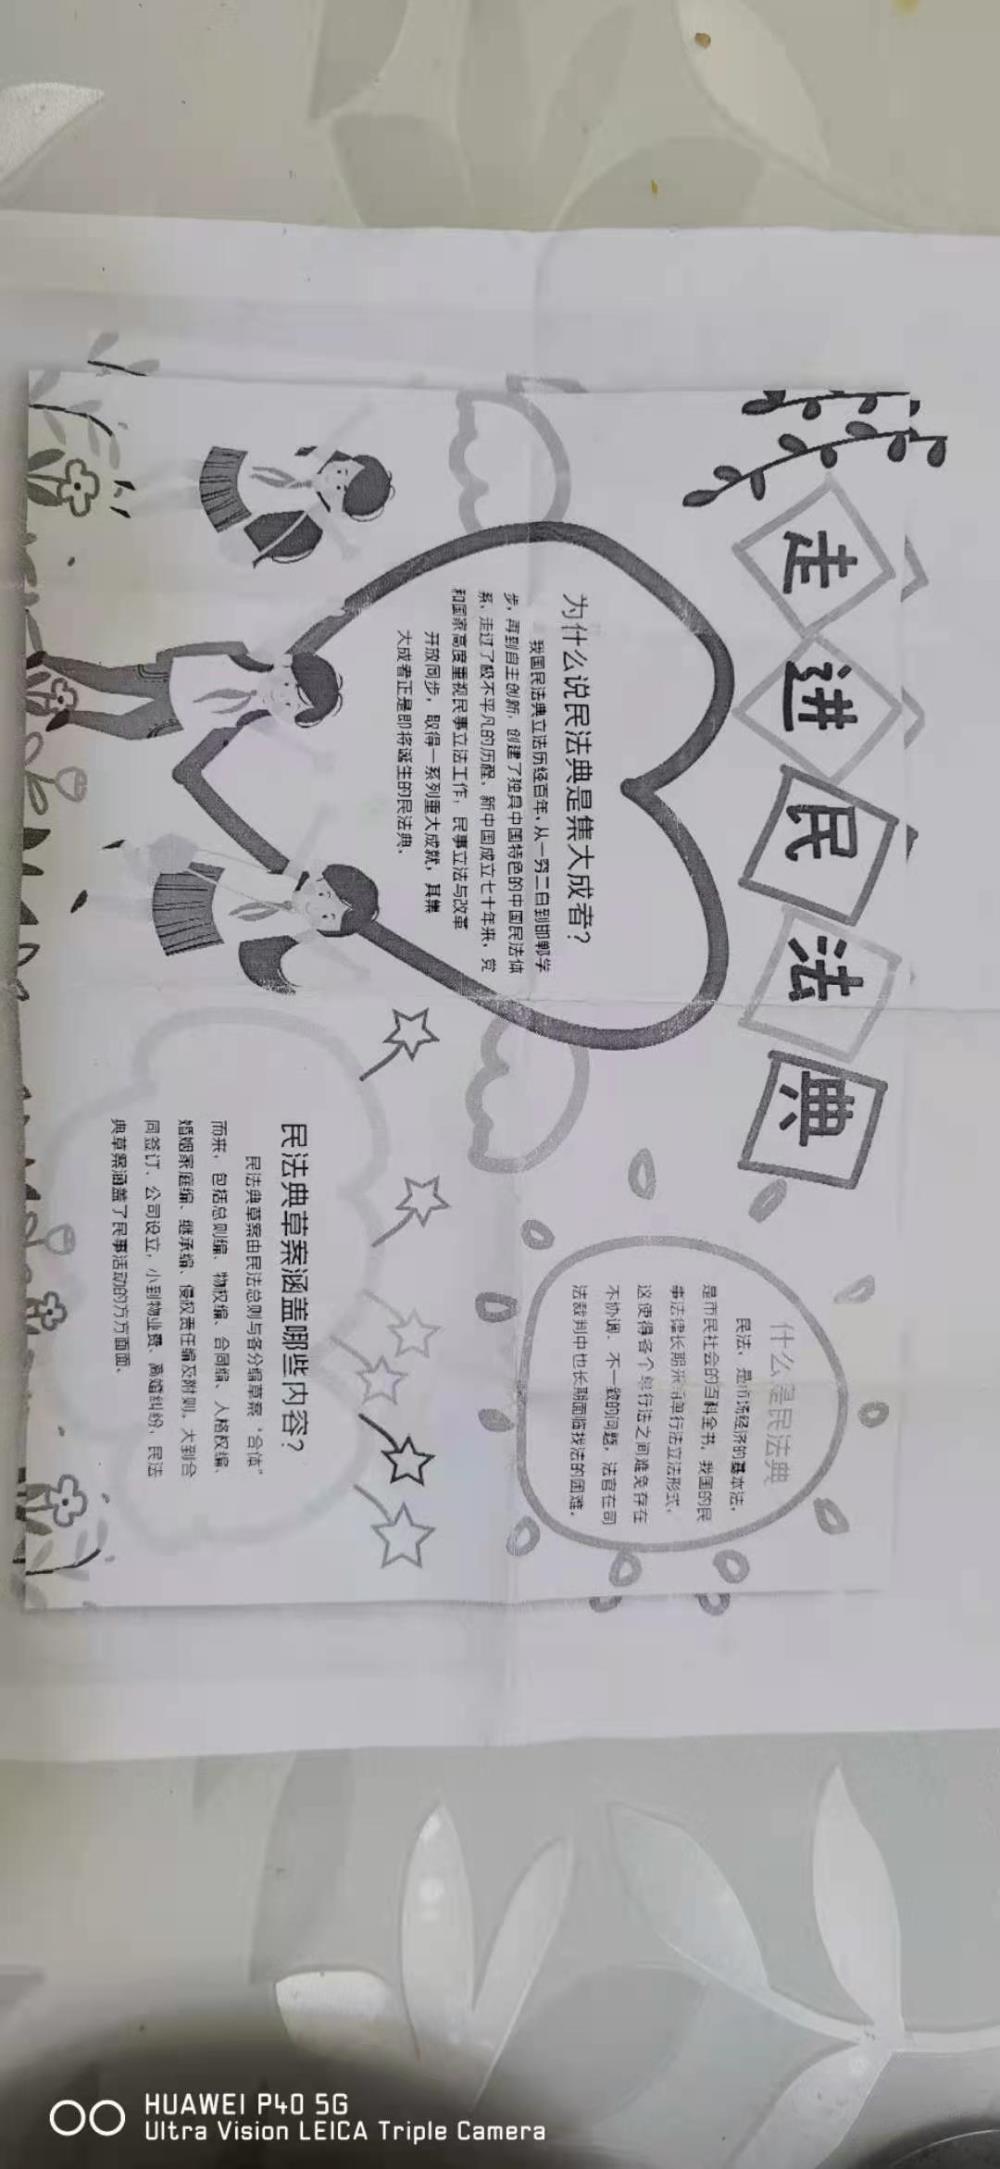 走进民法典
为什么说民法典是集大成者?
我国民法典立法历经百年,从一穷二白到邯郸学
步,再到自主创新,创建了独具中国特色的中国民法体
系,走过了极不平凡的历程。新中国成立七十年来,党
和国家高度重视民事立法工作,民事立法与改革
开放同步,取得一系列重大成就,其集
大成者正是即将诞生的民法典。
什么是民法典
民法,是市场经济的基本法,
是市民社会的百科全书,我国的民
事法律长期采用单行法立法形式,
这使得各个单行法之间难免存在
不协调、不一致的问题,法官在司
法裁判中也长期面临找法的困难。
民法典草案涵盖哪些内容?
民法典草案由民法总则与各分编草案“合体”
而来,包括总则编、物权编、合同编、人格权编、
婚姻家庭编、继承编、侵权责任编及附则。大到合
同签订、公司设立,小到物业费、离婚纠纷,民法
典草案涵盖了民事活动的方方面面。
HUAWEI P40 5G
Ultra Vision LEICA Triple Camera